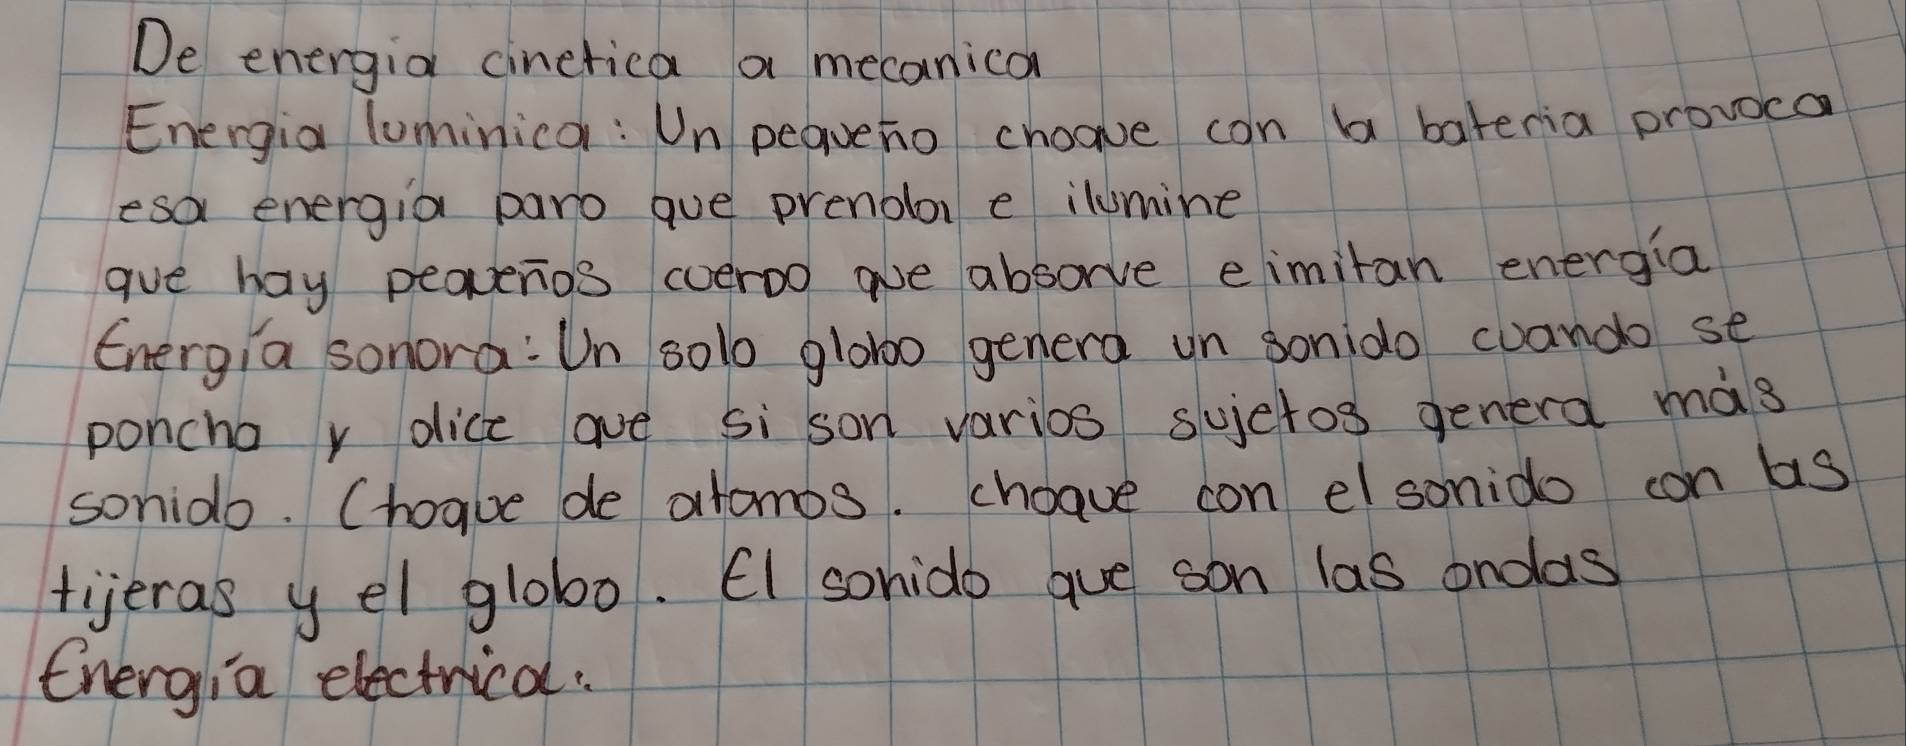 De energia cinetica a mecanica
Energia luminica: Un pequeño choque con la bateria provoca
esa energía para que prenda e ilumine
que hay pequeños cuerpo que absorve e imitan energía
Energía sonora: Un solo globo genera un sonido cuando se
poncha y dice que si son varios sujetos genera más
sonido. Choque de atomos. choque con el sonido con las
tijeras y el globo. El sonido que son las ondas
Energía electrica: